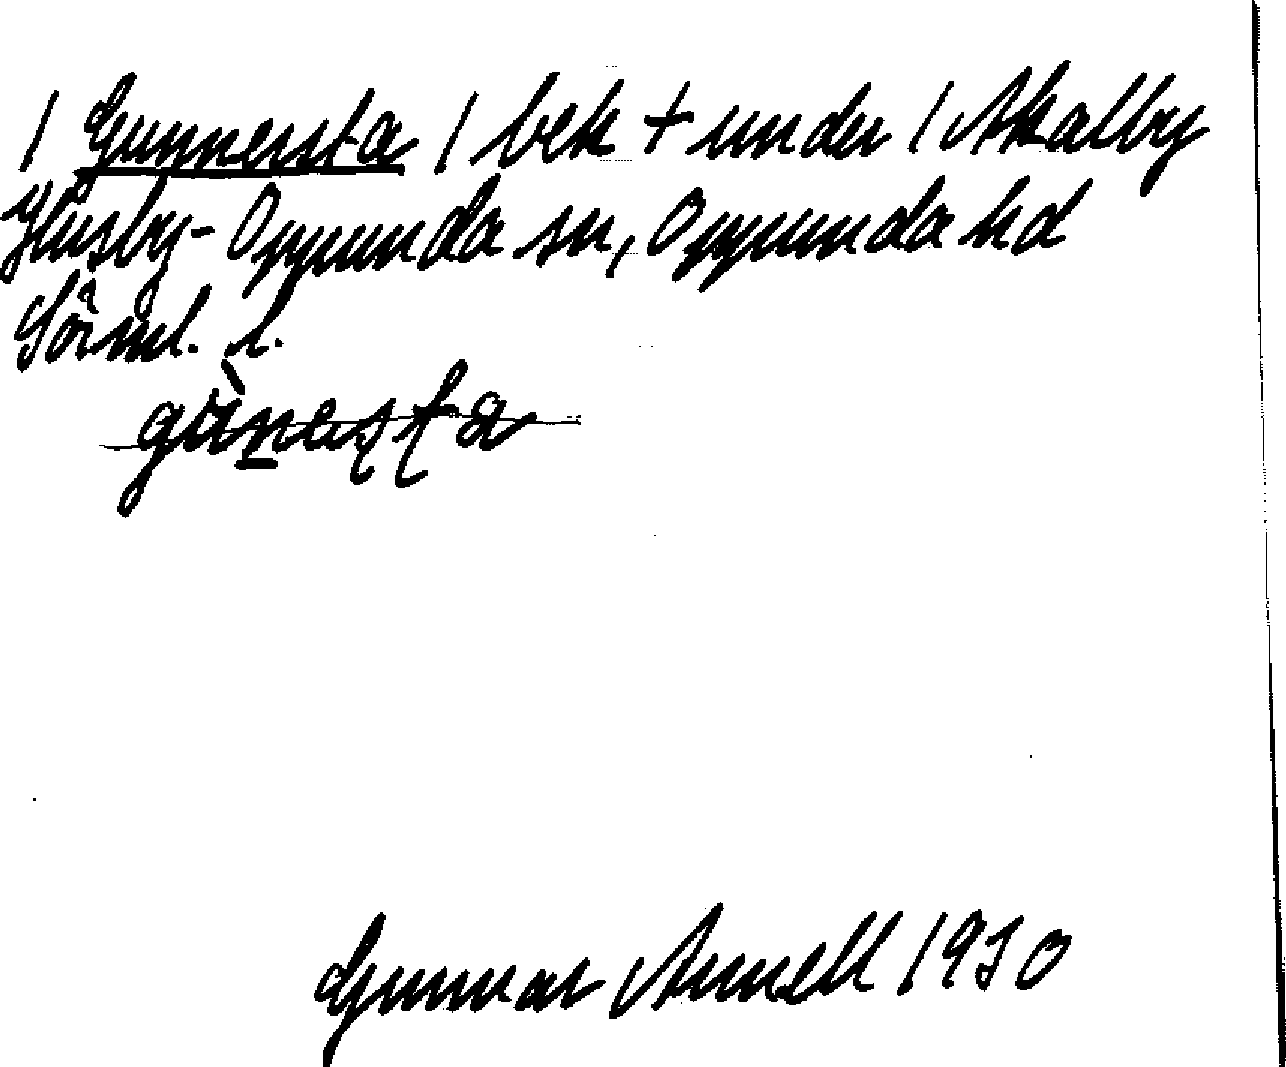 / Gunnersta / bek + under / Akalby
Husby-Oppunda sn, Oppunda hd
Sörml. l.
gùnesta
Gunnar Arnell 1930